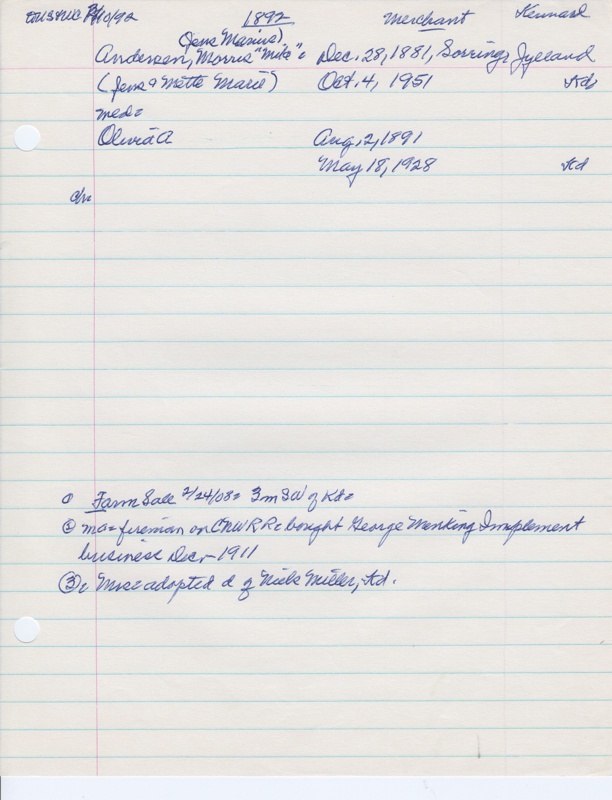 1892 Merchant Kennard
(Jens Marius)
Andersen, Morris "Mike" = Dec. 28, 1881, Sorring, Jylland
(Jens & Mette Marie) Oct. 4, 1951 Kd
med=
Olivia A Aug. 2, 1891
May 18, 1928 Kd
ch=
① Farm Sale 2/24/08= 3m SW of Kd=
② ma= fireman on CNWRR= bought George Menking Implement
business Dec.- 1911
③= Mrs= adopted d of Niels Miller, Kd.